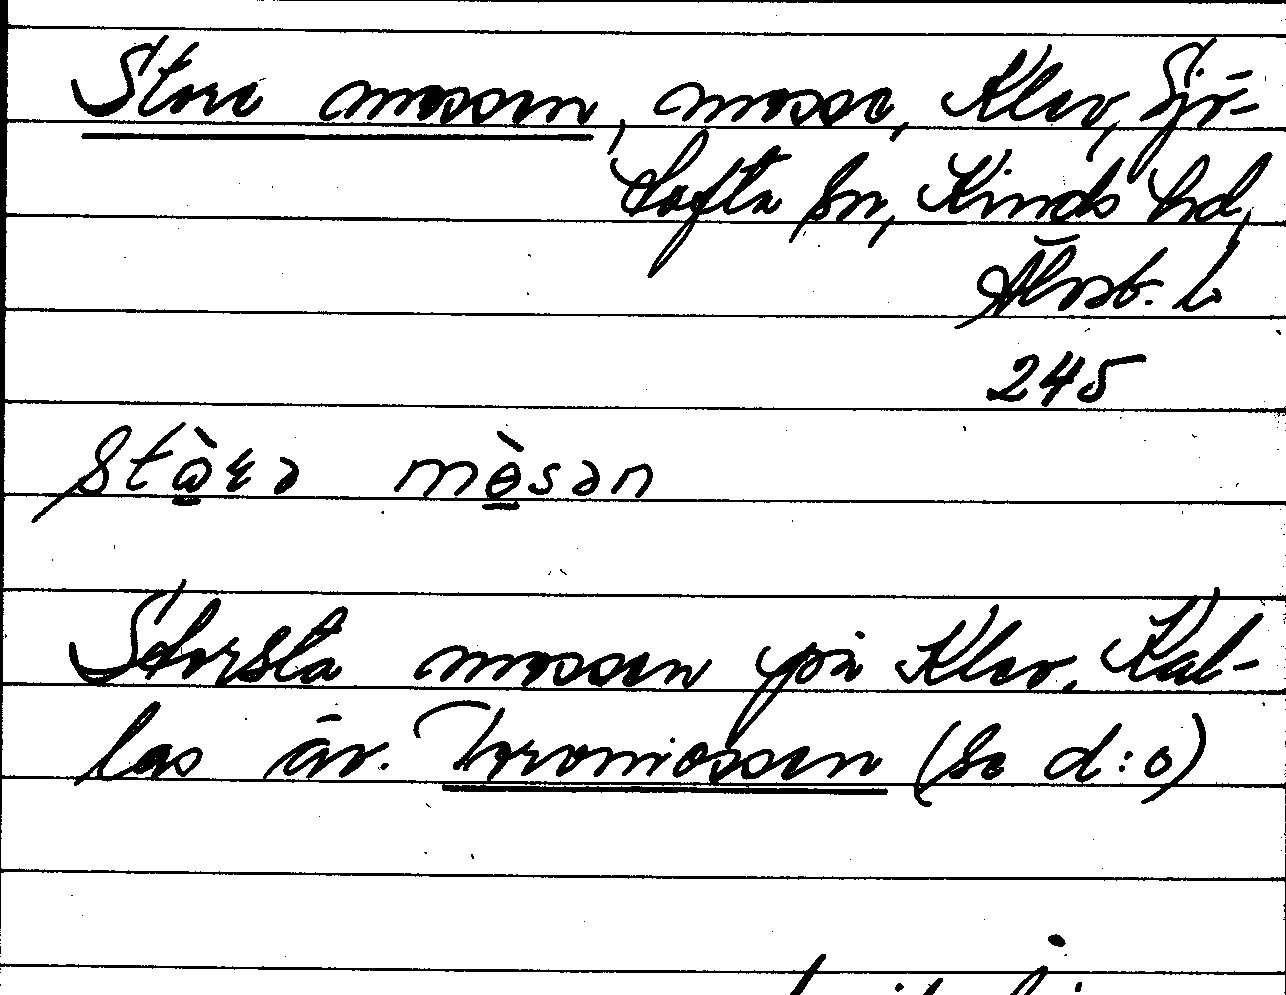 Store mossen, mosse, Klev, Sjö-
tofta sn, Kinds hd,
Älvsb. l.
245
stò̱rə mò̱sən
Största mossen på Klev. Kal-
las äv. Tormossen (Se d:o)